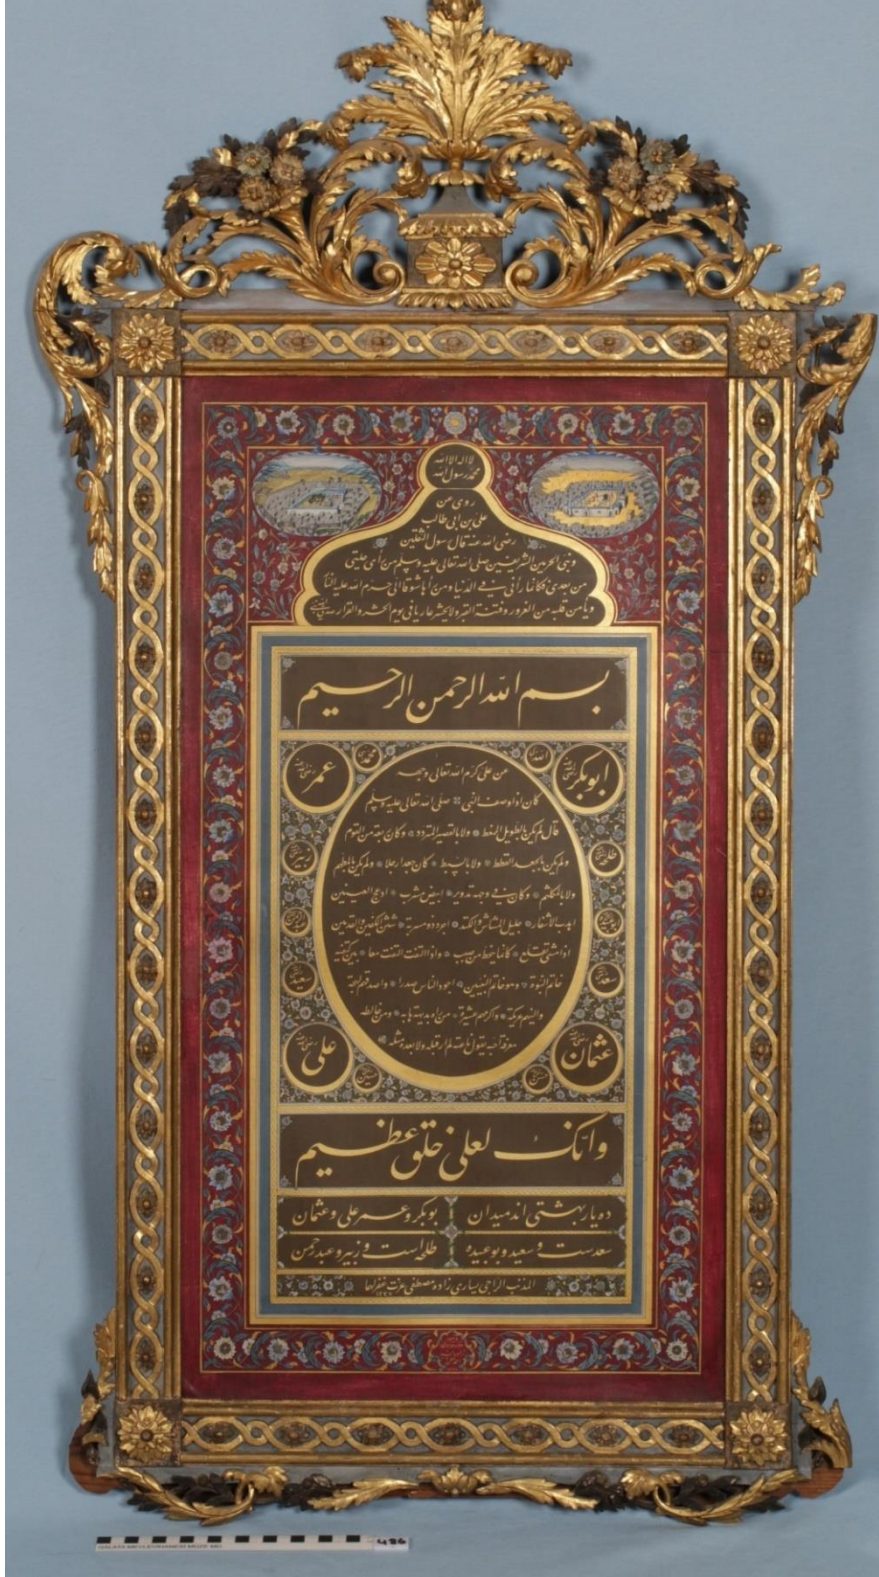 لا اله الا الله
محمد رسول الله
روى عن
على بن ابى طالب
رضى الله عنه قال رسول الثقلين
ونبى الحرمين الشريفين صلى الله تعالى عليه وسلم من رأى حليتى
من بعدى فكانما رآنى فى الدنيا ومن
حرم الله عليه النار
ويأمن من الغرور وفتنة القبر ولا يحشر عاريا فى يوم الحشر والقرار
بسم الله الرحمن الرحيم
الله
محمد
ابوبكر
عمر
عن على كرم الله تعالى وجهه
كان اذا وصف النبى صلى الله تعالى عليه وسلم
قال لم يكن بالطويل الممغط ولا بالقصير المتردد وكان ربعة من القوم
ولم يكن بالجعد القطط ولا بالسبط كان جعدا رجلا ولم يكن بالمطهم
ولا بالمكلثم وكان فى وجهه تدوير ابيض مشرب ادعج العينين
اهدب الاشفار جليل المشاش والكتد اجرد ذو مسربة شثن الكفين والقدمين
اذا مشى تقلع كانما ينحط من صبب واذا التفت التفت معا بين كتفيه
خاتم النبوة وهو خاتم النبيين اجود الناس صدرا واصدقهم لهجة
والينهم عريكة واكرمهم عشيرة من رآه بديهة هابه ومن خالطه
معرفة احبه يقول ناعته لم ار قبله ولا بعده مثله
طلحه
زبير
سعد
سعيد
عثمان
على
حسن
حسين
وانك لعلى خلق عظيم
ده يار بهشتى اند ميدان بوبكر و عمر على و عثمان
سعدست و سعيد و بوعبيده طلحه است و زبير و عبدرحمن
المذنب الراجى يسارى زاده مصطفى عزت غفر لهما
GALATA MEVLEVİHANESİ MÜZESİ
486